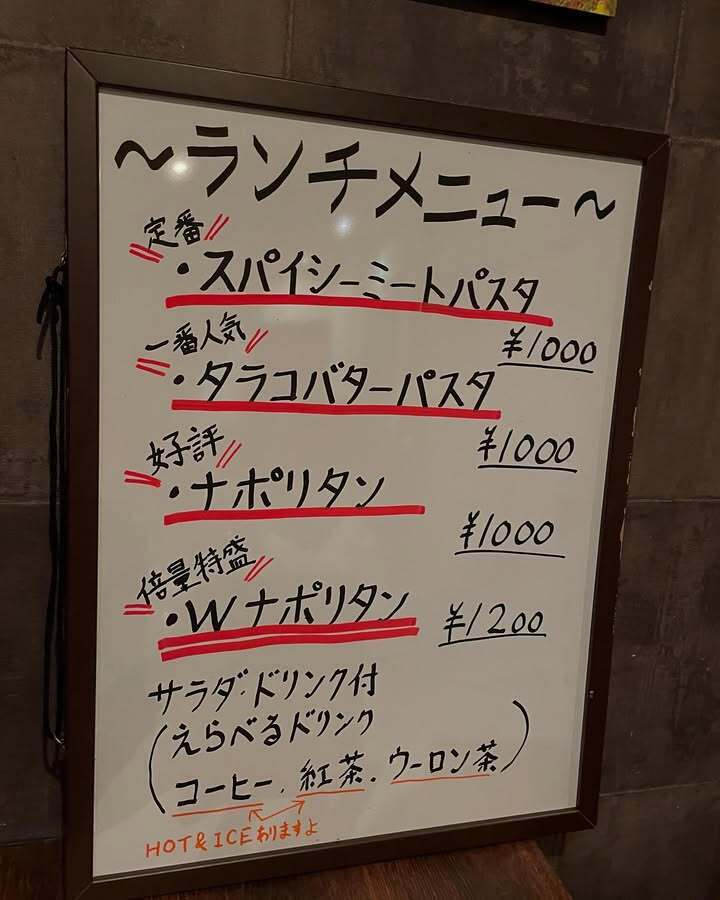 〜ランチメニュー〜
定番
・スパイシーミートパスタ
¥1000
一番人気
・タラコバターパスタ
¥1000
好評
・ナポリタン
¥1000
倍量特盛
・Wナポリタン
¥1200
サラダ・ドリンク付
(えらべるドリンク
コーヒー、紅茶、ウーロン茶)
HOT&ICEありますよ